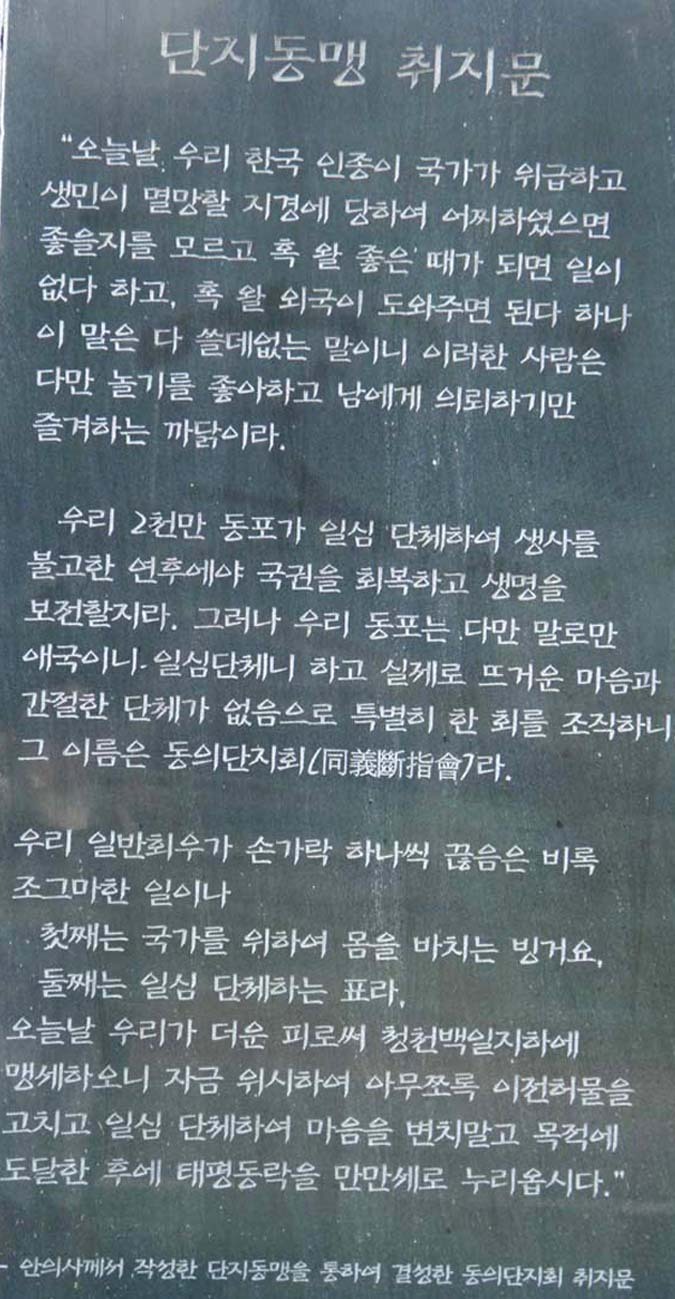 단지동맹 취지문
“오늘날 우리 한국 인종이 국가가 위급하고
생민이 멸망할 지경에 당하여 어찌하였으면
좋을지를 모르고 혹 왈 좋은 때가 되면 일이
없다 하고, 혹 왈 외국이 도와주면 된다 하나
이 말은 다 쓸데없는 말이니 이러한 사람은
다만 놀기를 좋아하고 남에게 의뢰하기만
즐겨하는 까닭이라.
우리 2천만 동포가 일심 단체하여 생사를
불고한 연후에야 국권을 회복하고 생명을
보전할지라. 그러나 우리 동포는 다만 말로만
애국이니 일심단체니 하고 실제로 뜨거운 마음과
간절한 단체가 없음으로 특별히 한 회를 조직하니
그 이름은 동의단지회(同義斷指會)라.
우리 일반회우가 손가락 하나씩 끊음은 비록
조그마한 일이나
첫째는 국가를 위하여 몸을 바치는 빙거요,
둘째는 일심 단체하는 표라,
오늘날 우리가 더운 피로써 청천백일지하에
맹세하오니 자금 위시하여 아무쪼록 이전허물을
고치고 일심 단체하여 마음을 변치말고 목적에
도달한 후에 태평동락을 만만세로 누리옵시다.”
- 안의사께서 작성한 단지동맹을 통하여 결성한 동의단지회 취지문